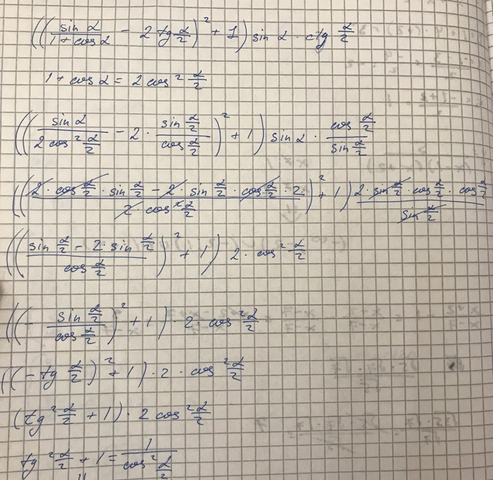 (((sin α / 1 + cos α) - 2 tg α/2)² + 1) sin α · ctg α/2
1 + cos α = 2 cos² α/2
(((sin α / 2 cos² α/2) - 2 · (sin α/2 / cos α/2))² + 1) sin α · (cos α/2 / sin α/2)
(((2 · cos α/2 · sin α/2 - 2 · sin α/2 · cos α/2 · 2) / 2 cos² α/2)² + 1) (2 · sin α/2 · cos α/2 · cos α/2 / sin α/2)
(((sin α/2 - 2 · sin α/2) / cos α/2)² + 1) 2 · cos² α/2
((- sin α/2 / cos α/2)² + 1) · 2 · cos² α/2
((- tg α/2)² + 1) · 2 · cos² α/2
(tg² α/2 + 1) · 2 cos² α/2
tg² α/2 + 1 = 1 / cos² α/2